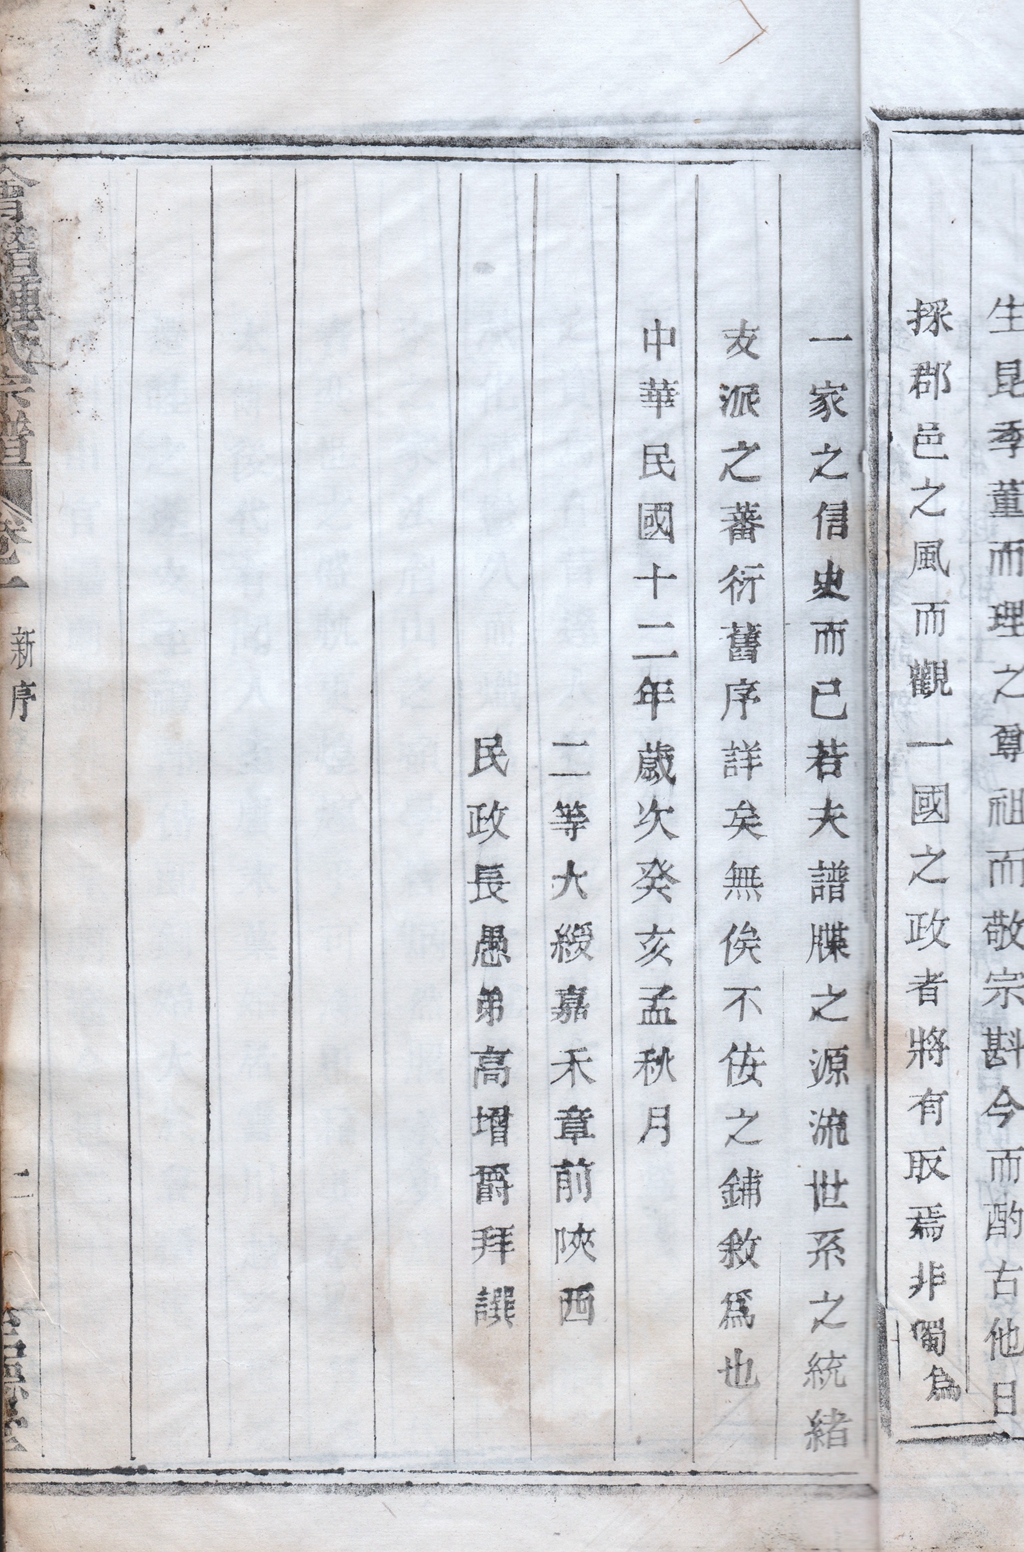 生昆季董而理之尊祖而敬宗斟今而酌古他日
採郡邑之風而觀一國之政者將有取焉非獨爲
一家之信史而已若夫譜牒之源流世系之統緒
支派之蕃衍舊序詳矣無俟不侫之鋪敘爲也
中華民國十二年歲次癸亥孟秋月
二等大綬嘉禾章前陝西
民政長愚弟高增爵拜譔
會稽 氏宗譜 卷一 新序 二